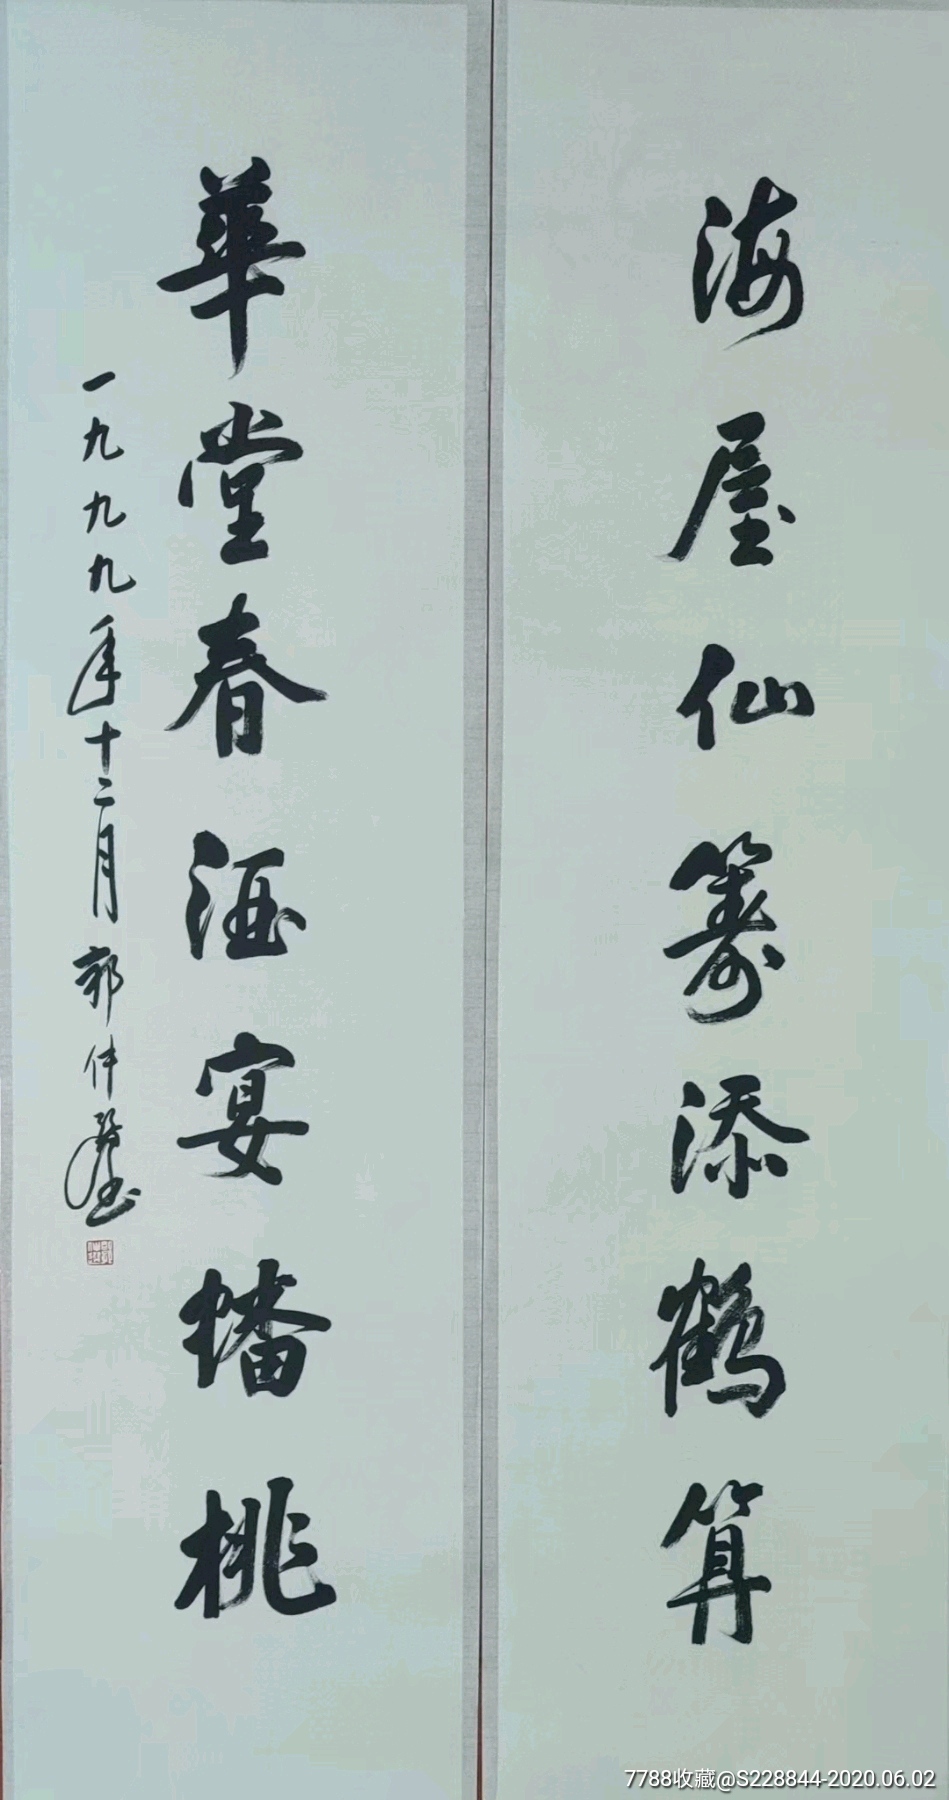 海屋仙籌添鶴算
華堂春酒宴蟠桃
一九九九年十二月 郭仲
7788收藏@S228844-2020.06.02